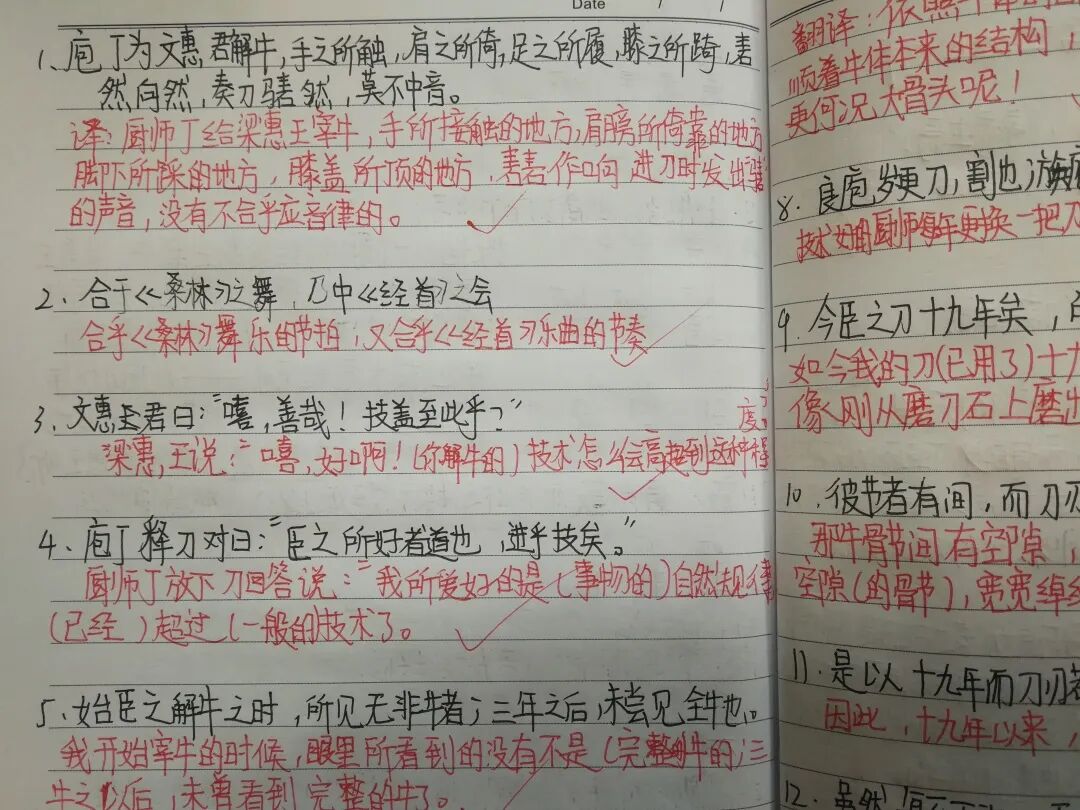 Date / /
1、庖丁为文惠君解牛，手之所触，肩之所倚，足之所履，膝之所踦，砉
然向然，奏刀騞然，莫不中音。
译：厨师丁给梁惠王宰牛，手所接触的地方，肩膀所倚靠的地方
脚下所踩的地方，膝盖所顶的地方，砉砉作响 进刀时发出騞
的声音，没有不合乎应音律的。
2、合于《桑林》之舞，乃中《经首》之会
合乎《桑林》舞乐的节拍，又合乎《经首》乐曲的节奏
3、文惠君曰："嘻，善哉！技盖至此乎？"
梁惠王说："嘻，好啊！(你解牛的)技术怎么会高超到这种程
度？"
4、庖丁释刀对曰："臣之所好者道也，进乎技矣。"
厨师丁放下刀回答说："我所爱好的是(事物的)自然规律
(已经)超过(一般的)技术了。
5、始臣之解牛之时，所见无非牛者；三年之后，未尝见全牛也。
我开始宰牛的时候，眼里所看到的没有不是(完整的)牛的；三
年之以后，未曾看到完整的牛了。
翻译：依照牛体的
顺着牛体本来的结构，
更何况大骨头呢！
8. 良庖岁更刀，割也；族庖
技术好的厨师每年更换一把刀
9. 今臣之刀十九年矣，所
如今我的刀(已用了)十九
像刚从磨刀石上磨出
10. 彼节者有间，而刀刃
那牛骨节间有空隙，
空隙(的骨节)，宽宽绰绰
11. 是以十九年而刀刃若
因此，十九年以来，
12. 虽然